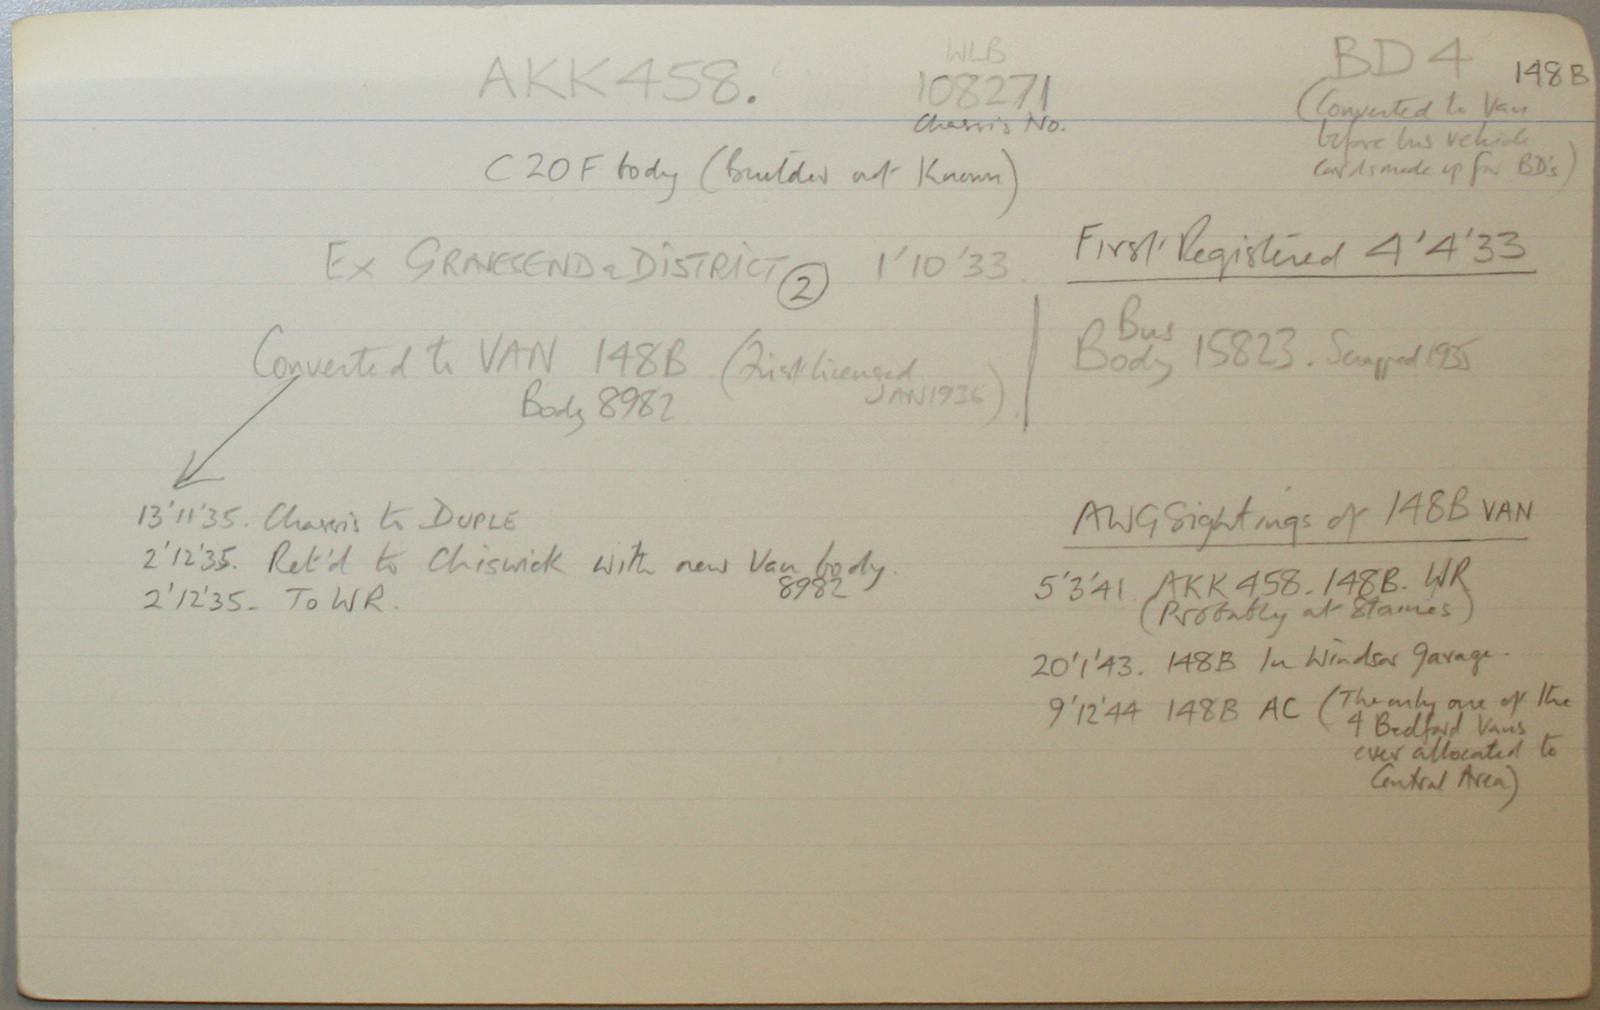 AKK458.
WLB
108271
Chassis No.
BD4
148B
(Converted to Van
before bus vehicle
cards made up for BD's)
C20F body (Builder not Known)
Ex GRAVESEND & DISTRICT (2) 1'10'33
First Registered 4'4'33
Converted to VAN 148B (First licensed
JAN 1936)
Body 8982
Bus
Body 15823. Scrapped 1935
13'11'35. Chassis to DUPLE
2'12'35. Ret'd to Chiswick with new Van body.
8982
2'12'35. To WR.
AWG Sightings of 148B VAN
5'3'41. AKK458. 148B. WR
(Probably at Staines)
20'1'43. 148B In Windsor garage.
9'12'44 148B AC (The only one of the
4 Bedford Vans
ever allocated to
Central Area)